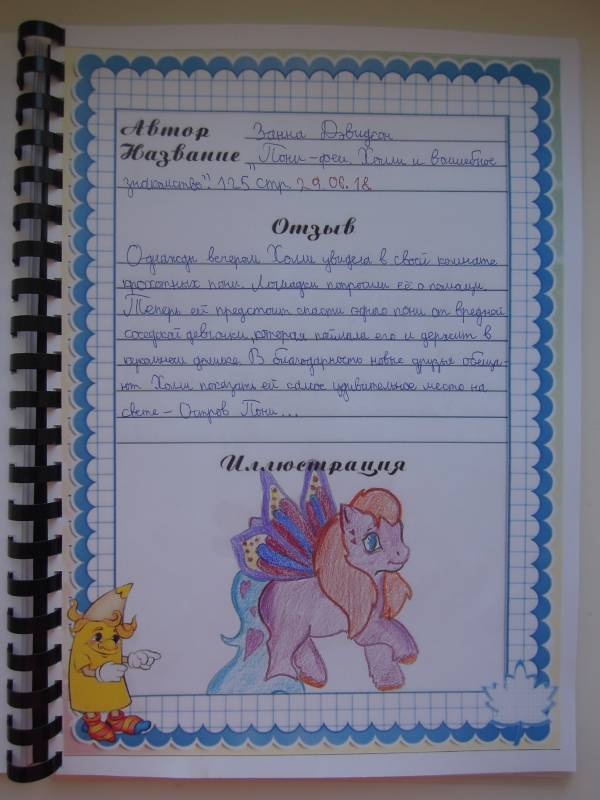 Автор Занна Дэвидсон
Название "Пони-феи. Холли и волшебное
знакомство". 125 стр. 29.06.18
Отзыв
Однажды вечером Холли увидела в своей комнате
крохотных пони. Лошадки попросили её о помощи.
Теперь ей предстоит спасти одного пони от вредной
соседской девчонки, которая поймала его и держит в
кукольном домике. В благодарность новые друзья обеща-
ют Холли показать ей самое удивительное место на
свете – Остров Пони...
Иллюстрация